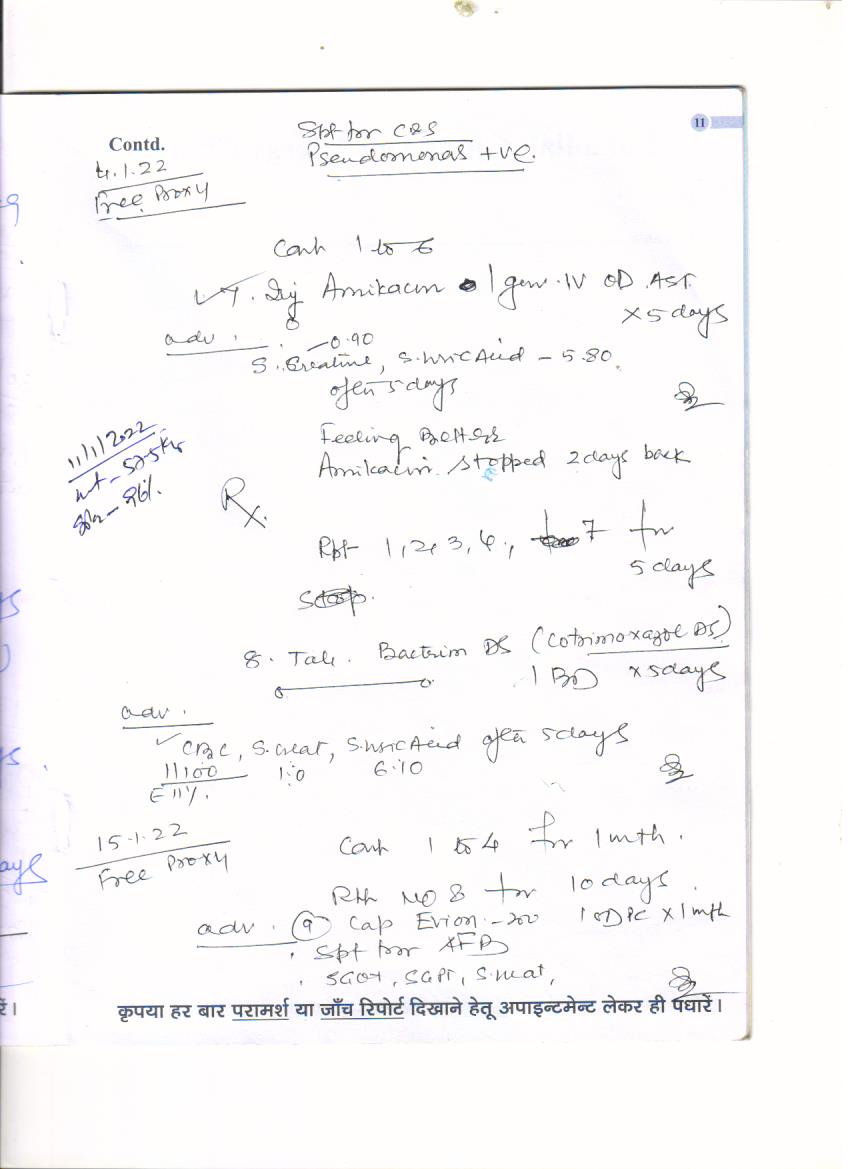 11
Contd.
Spt for C&S
Pseudomonas +ve.
4.1.22
Free Proxy
Cont 1 to 6
7. Inj Amikacin 1 gm IV OD AST
x 5 days
adv.
0.90
S. Creatine, S. Uric Acid - 5.80
after 5 days
Feeling Better
Amikacin stopped 2 days back
11/1/2022
wt - 52.5 kg
96%
Rx
Rpt 1, 2, 3, 4, 7 for
5 days
Stop.
8. Tab. Bactrim DS (Cotrimoxazol DS)
1 BD x 5 days
adv.
CBC, S. creat, S. Uric Acid after 5 days
11100 1.0 6.10
E 11%.
15.1.22
Free Proxy
Cont 1 to 4 for 1 mth.
Rpt No 8 for 10 days.
adv. 9 Cap Evion - 200 1 OD PC x 1 mth
. Spt for AFB
. SGOT, SGPT, S. creat,
कृपया हर बार परामर्श या जाँच रिपोर्ट दिखाने हेतू अपाइन्टमेन्ट लेकर ही पधारें।